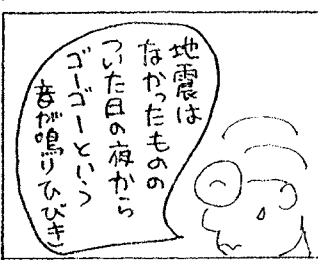 地震は
なかったものの
ついた日の夜から
ゴーゴーという
音が鳴りひびき